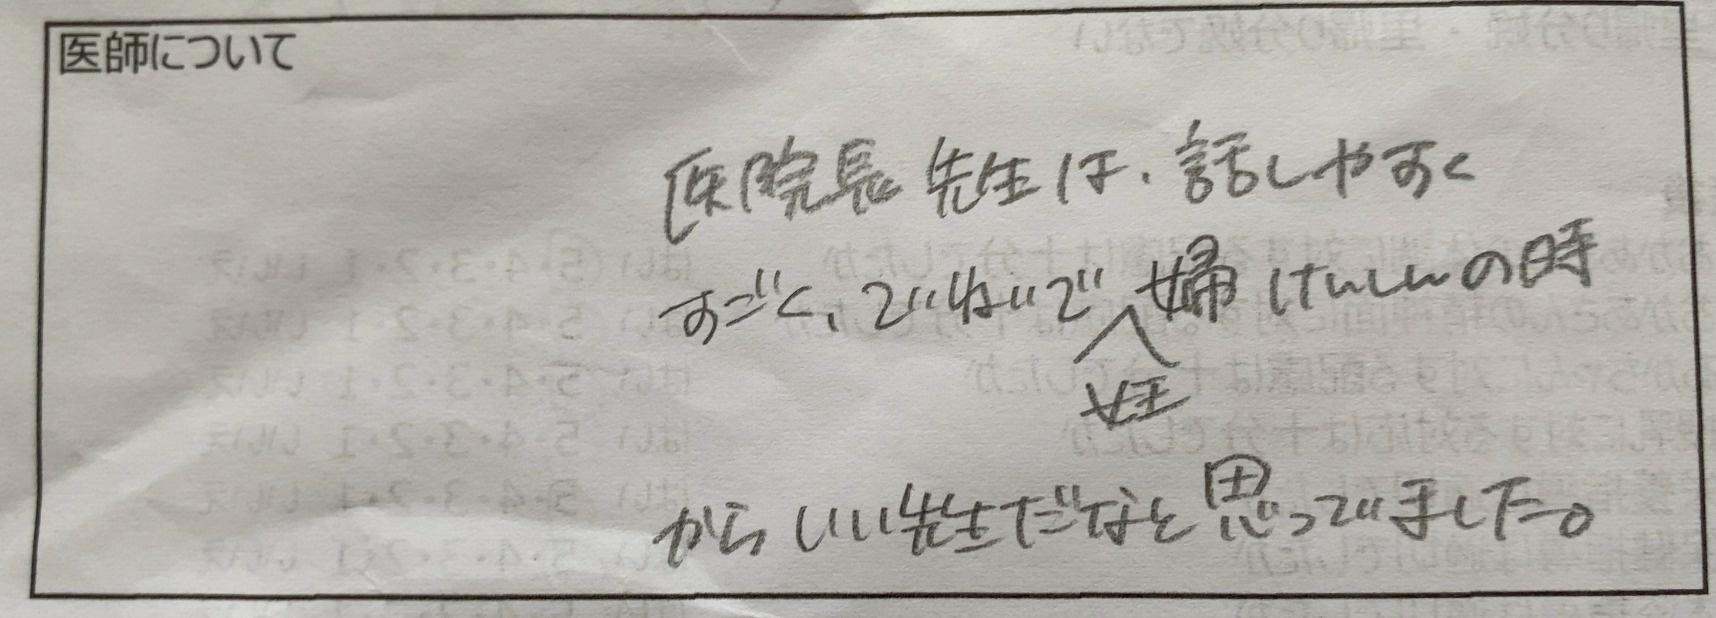 医師について
医院長先生は、話しやすく
すごく、ていねいで妊婦けんしんの時
からいい先生だなと思っていました。